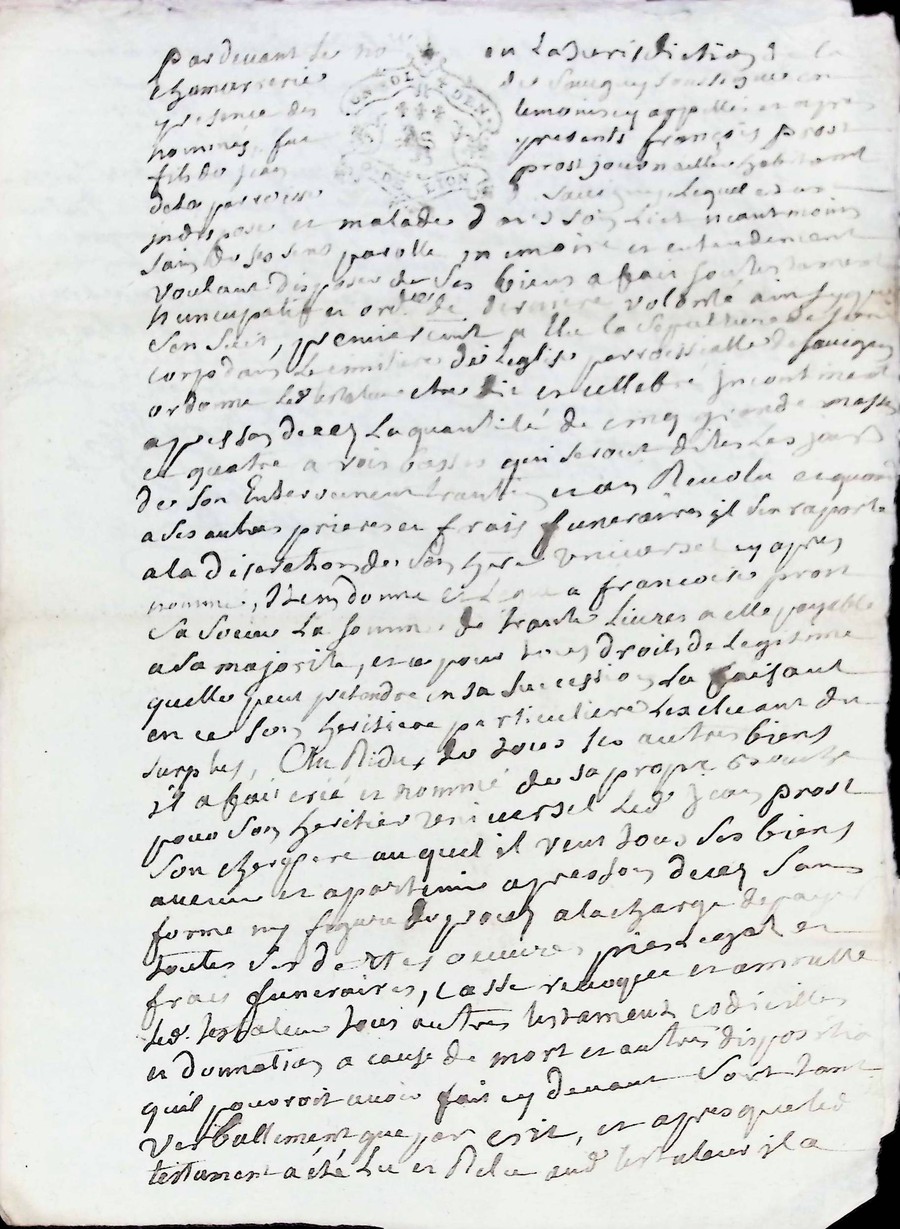 Pardevant le no en la Jurisdiction de la
chamarrerie de Savigny soussigné en
presence des temoins cy appellés et apres
nommés, fut presents françois prost
fils de Jean prost journaillier habitant
de la parroisse Savigny lequel etant
indisposé et malade dans son lict neantmoins
sain de ses sens parolle memoire et entendement
voulant disposer de ses biens a fait son testament
nuncupatif et ordce de derniere volonté ainsy que
s'en suit, premierement a elle la sepulture de son
corps dans le cimitiere de l'eglise parroissialle de savigny
ordonne led testateur etre dit et cellebré Incontinent
apres son deces la quantité de cinq grande messes
et quatre a voix basses qui seront dites les jours
de son Enterrement trantin et an Revolu et quand
a ses autres prieres et frais funeraires il s'en raporte
a la discretion de son hered universel cy apres
nommé, Item donne et legue a francoise prost
sa soeur la somme de trante Livres a elle payable
a sa majorité, et ce pour tous droits de legitime
quelle peut pretendre en sa succession la faisant
en ce son heritiere particuliere l'excluant du
surplus, Au Residu de tous ses autres biens
il a fait créé et nommé de sa propre bouche
pour son heritier universel led Jean prost
son cher pere auquel il veut tous ses biens
avenir et apartenir apres son deces sans
forme ny figure de proces a la charge de payer
toutes ses dettes oeuvres pies legat et
frais funeraires, casse revoque et annulle
led. testateur tous autres testament codicilles
et donnation a cause de mort et autres dispositio
quil pouvroit avoir fait cy devant soit tant
verballement que par ecrit, et apres que led
testament a été Lu et Relu aud testateur il a